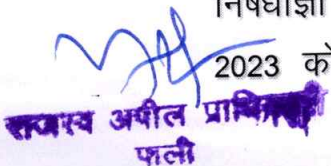 निषेधाज्ञा
2023 को
राजस्व अपील प्राधिकारी
पाली